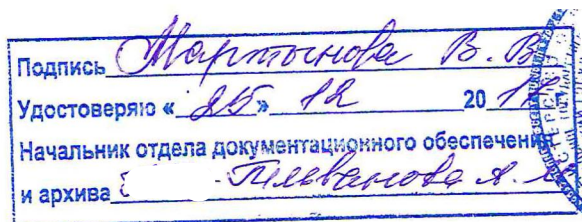 Подпись Мартынова В. В.
Удостоверяю « 25 » 12 20 17
Начальник отдела документационного обеспечения
и архива